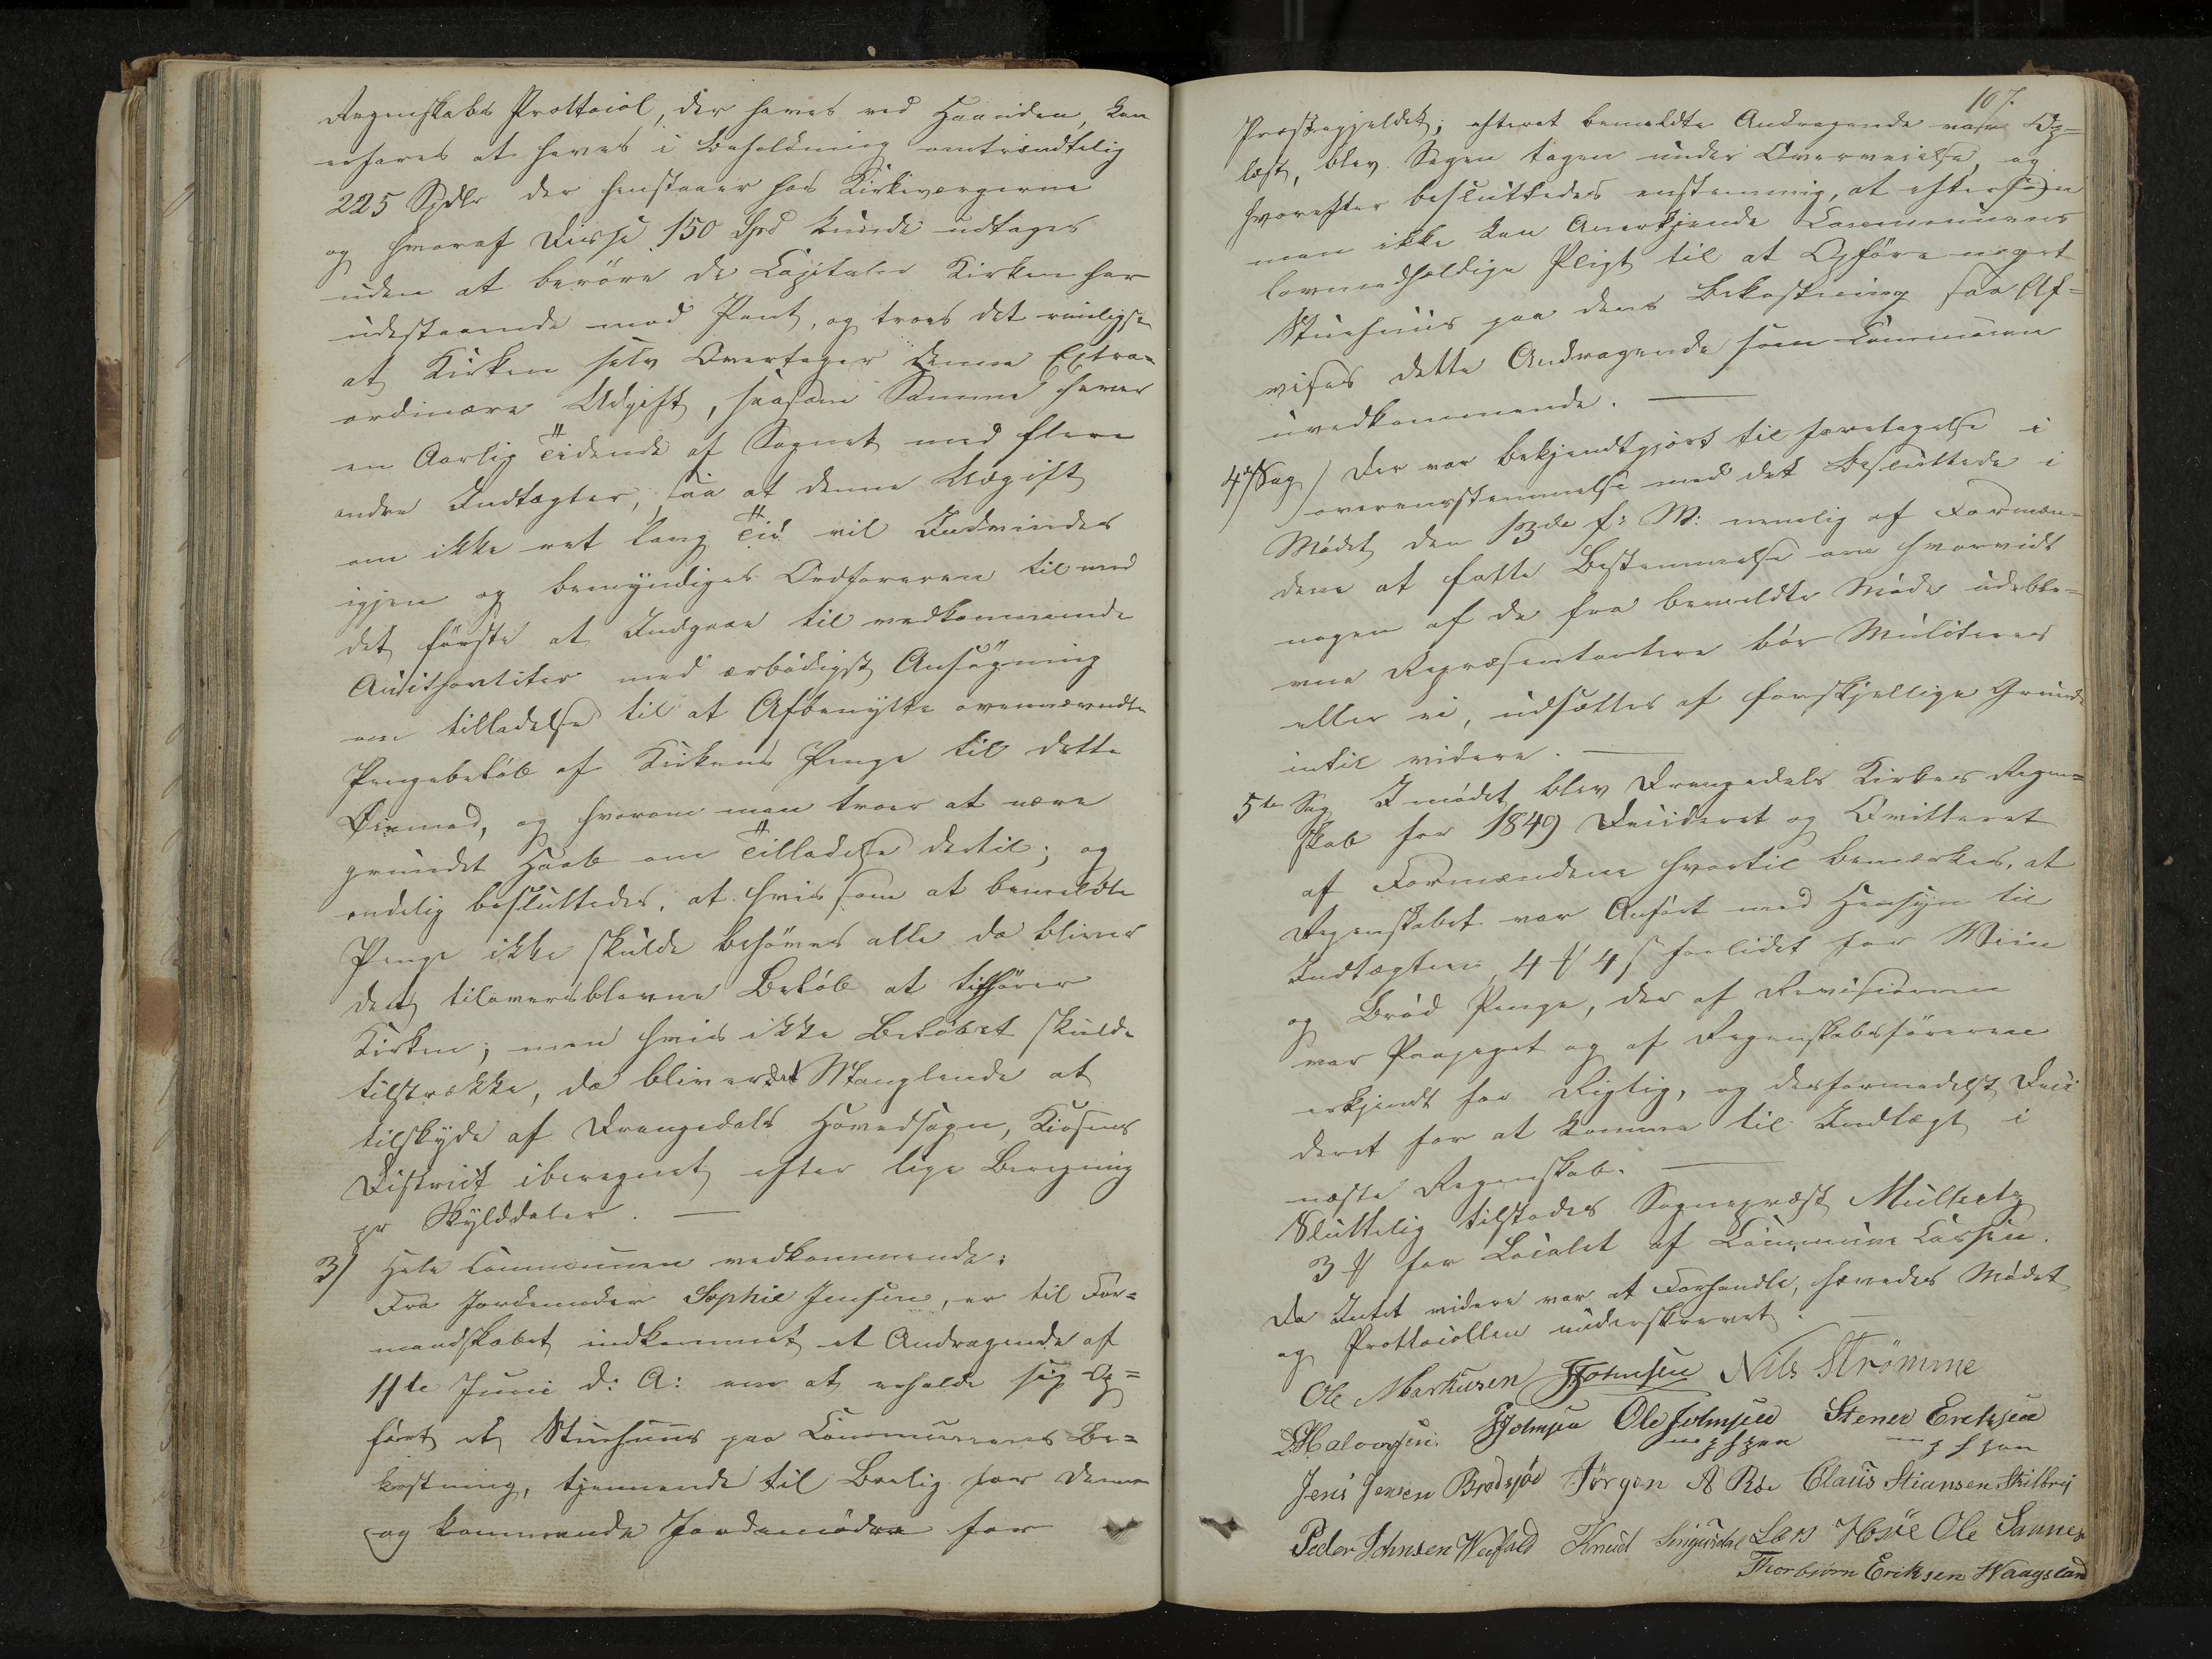 Regenskabs Prottocol, der haves ved Haanden, kan
erfares at haves i Beholdning omtrændtelig
225 Spdlr der henstaaer hos Kirkeværgerne
og hvoraf Disse 150 Spd kunde udtages
uden at berøre de Capitaler Kirken har
udestaaende mod Pant, og troes det rimeligst
at Kirken selv Overtager denne Extra-
ordinære Udgift, saasom Samme haver
en Aarlig Tidende af Sognet med flere
andre Indtægter, saa at denne Udgift
om ikke ret lang Tid vil Indvindes
igjen og bemyndiges Ordføreren til med
det første at Indgaae til vedkommende
Autithoriteter med ærbødigst Ansøgning
om tilladelse til at Afbenytte ovennævndte
Pengebeløb af Kirkens Penge til dette
Øiemed, og hvorom man troer at være
grundet Haab om Tilladelse dertil; og
endelig besluttedes, at hvis som at bemeldte
Penge ikke skulde behøves alle da bliver
det tiloversblevne Beløb at tilføres
Kirken; men hvis ikke Beløbet skulde
tilstrække, da bliver det Manglende at
tilskyde af Drangedals Hovedsogn, Kiosens
District iberegnet efter lige Beregning
pr Skylddaler. —
3) Hele Communen vedkommende:
Fra Jordemoder Sophie Jensen, er til For=
mandskabet indkommet et Andragende af
11te Juni d: A: om at erholde sig Op=
ført et Stuehuus paa Communens Be=
kostning, tjennende til Bolig for denne
og kommende Jordemødre for
107.
Præstegjeldet; efterat bemeldte Andragende var Op=
læst, blev Sagen tagen under Overveielse, og
hvorefter besluttedes enstemmig, at eftersom
man ikke kan Anerkjende Communens
lovmedholdige Pligt til at Opføre noget
Stuehuus paa dens Bekostning saa Af=
vises dette Andragende som Communen
uvedkommende. —
4de Sag) Der var bekjendtgjort til foretagelse i
overensstemmelse med det Besluttede i
Mødet den 13de f: M: nemlig af Formæn=
dene at fatte Bestemmelse om hvorvidt
nogen af de fra bemeldte Møde udeble=
vne Repræsentantere bør Mulcteres
eller ei, udsættes af forskjellige Grunde
intil videre. —
5te Sag I mødet blev Drangedals Kirkes Regn=
skab for 1849 Decideret og Qvitteret
af Formændene hvortil bemærkes, at
Regenskabet var Anført med Hensyn til
Indtægten 4 # 4 s forlidet for Viin
og Brød Penge, der af Revisionen
var Paapeget og af Regenskabsføreren
erkjendt for Rigtig, og desformedelst Deci
deret for at komme til Indtægt i
næste Regenskab. —
Sluttelig tilstodes Sognepræst Mülhertz
3 # for Localet af Commune Cassen.
Da Intet videre var at Forhandle, hævedes Mødet
og Prottocollen underskrevet.
Ole Markusen JJohnsen Nils Strömme
Halvorsen JJohnsen Ole Johnsen Stener Eriksen
m p h pen m p h pen
Jens Jensen Brødsjøe Jörgen A Röe Claus Stiansen
Peder Johnsen Knud Lars Ole Sannes
Thorbjörn Eriksen Waagsland